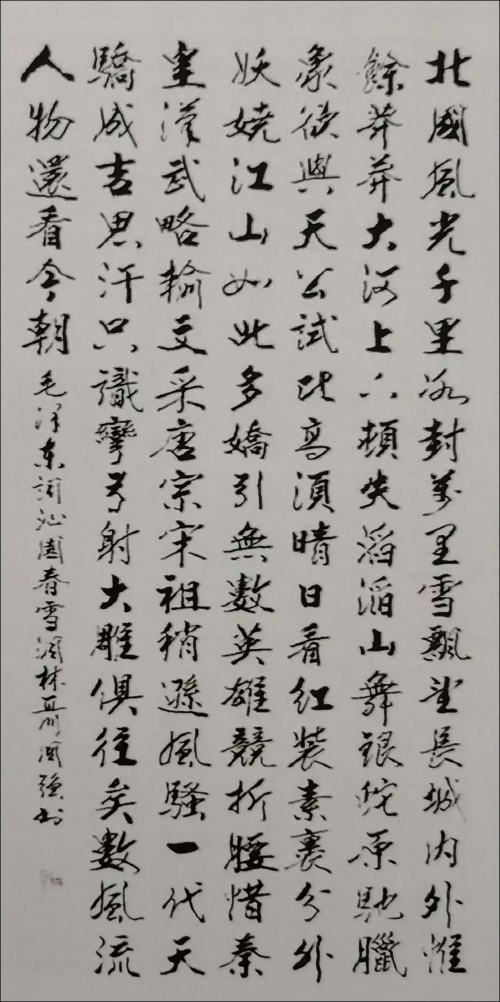 北國風光千里冰封萬里雪飄望長城内外惟
餘莽莽大河上下頓失滔滔山舞銀蛇原馳臘
象欲與天公試比高須晴日看紅裝素裹分外
妖嬈江山如此多嬌引無數英雄競折腰惜秦
皇漢武略輸文采唐宗宋祖稍遜風騷一代天
驕成吉思汗只識彎弓射大雕俱往矣數風流
人物還看今朝
毛澤東詞沁園春雪